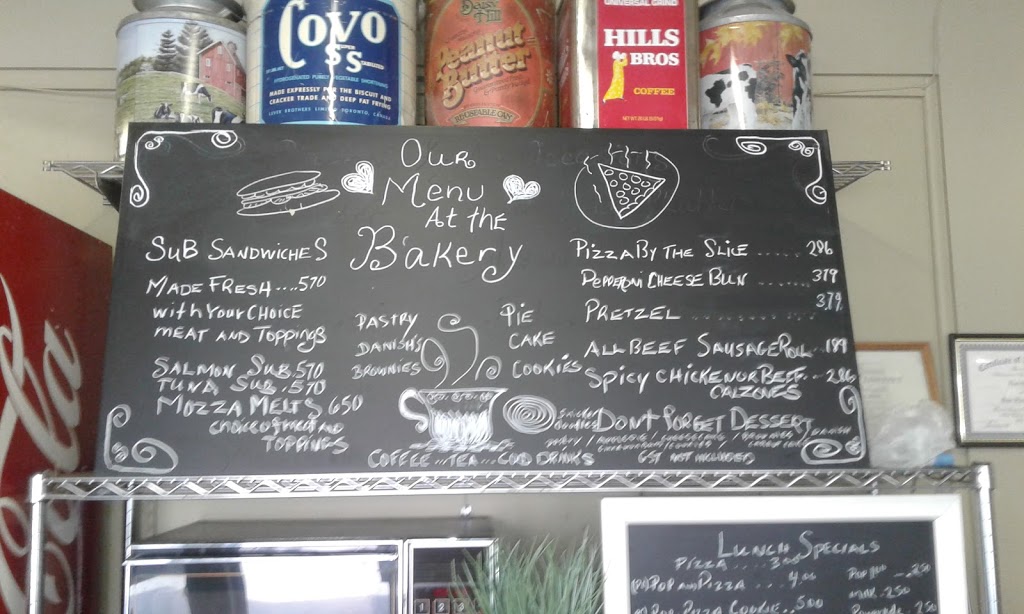 COVO
SUPER
S S
TABILIZED
HYDROGENATED PUREST VEGETABLE SHORTENING
MADE EXPRESSLY FOR THE BISCUIT AND
CRACKER TRADE AND DEEP FAT FRYING
LEVER BROTHERS LIMITED TORONTO, CANADA
Peanut
Butter
HILLS
BROS
COFFEE
Our
Menu
At the
Bakery
SUB SANDWICHES
MADE FRESH ....570
with Your CHOICE
MEAT AND TOPPINGS
SALMON SUB.570
TUNA SUB.570
MOZZA MELTS 650
CHOICE OF MEAT AND
TOPPINGS
PASTRY
DANISHS
BROWNIES
PIE
CAKE
COOKIES
COFFEE ... TEA ... COLD DRINKS
PIZZA BY THE SLICE ..... 286
PEPPERONI CHEESE BUN ....... 379
PRETZEL .......... 379
ALL BEEF SAUSAGE ROLL .. 189
SPICY CHICKEN OR BEEF... 286
CALZONES
DONT FORGET DESSERT
GST NOT INCLUDED
LUNCH SPECIALS
PIZZA .... 3.00
POP AND PIZZA .... 4.00
POP PIZZA COOKIE .. 5.00
MILK .250
Cola